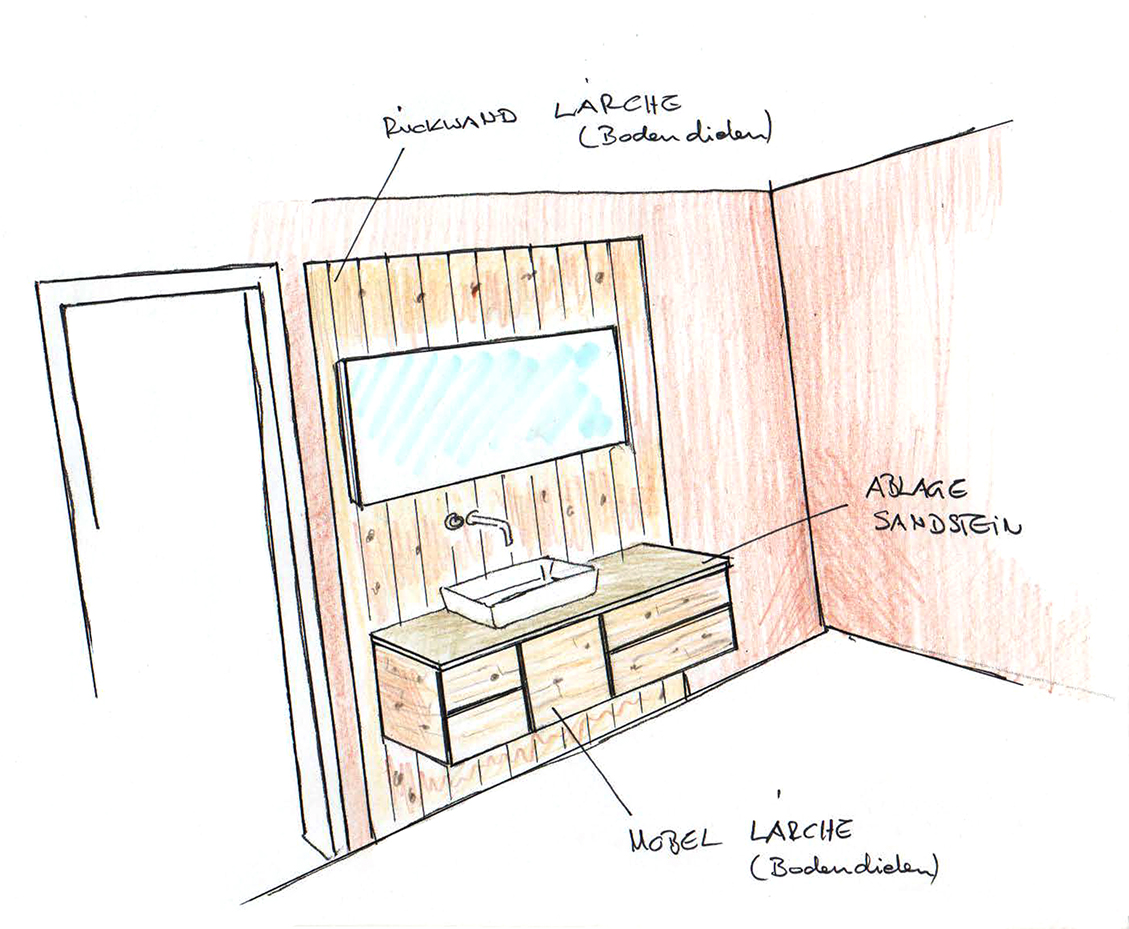 RÜCKWAND LÄRCHE
(Bodendielen)
ABLAGE
SANDSTEIN
MÖBEL LÄRCHE
(Bodendielen)